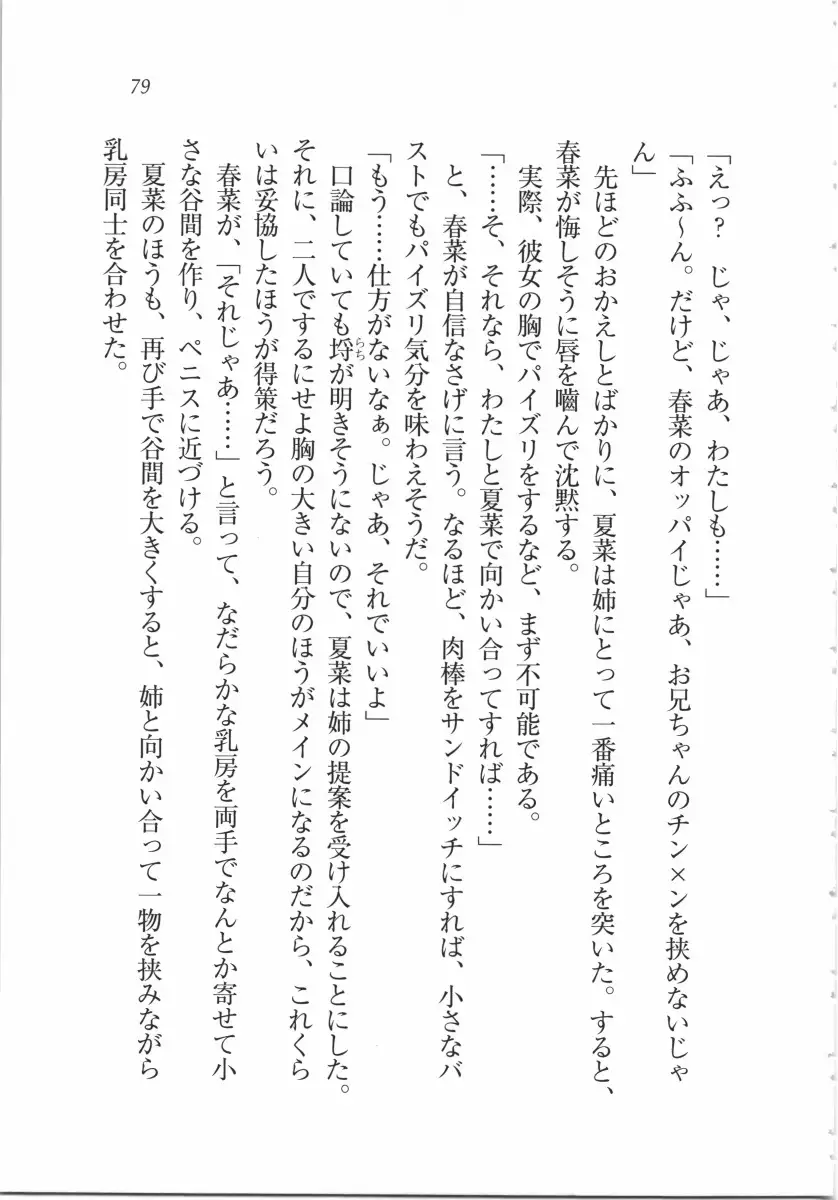 79
「えっ？　じゃ、じゃあ、わたしも……」
「ふふ～ん。だけど、春菜のオッパイじゃあ、お兄ちゃんのチン×ンを挟めないじゃ
ん」
　先ほどのおかえしとばかりに、夏菜は姉にとって一番痛いところを突いた。すると、
春菜が悔しそうに唇を嚙んで沈黙する。
　実際、彼女の胸でパイズリをするなど、まず不可能である。
「……そ、それなら、わたしと夏菜で向かい合ってすれば……」
　と、春菜が自信なさげに言う。なるほど、肉棒をサンドイッチにすれば、小さなバ
ストでもパイズリ気分を味わえそうだ。
「もう……仕方がないなぁ。じゃあ、それでいいよ」
　口論していても埒らちが明きそうにないので、夏菜は姉の提案を受け入れることにした。
それに、二人でするにせよ胸の大きい自分のほうがメインになるのだから、これくら
いは妥協したほうが得策だろう。
　春菜が、「それじゃあ……」と言って、なだらかな乳房を両手でなんとか寄せて小
さな谷間を作り、ペニスに近づける。
　夏菜のほうも、再び手で谷間を大きくすると、姉と向かい合って一物を挟みながら
乳房同士を合わせた。